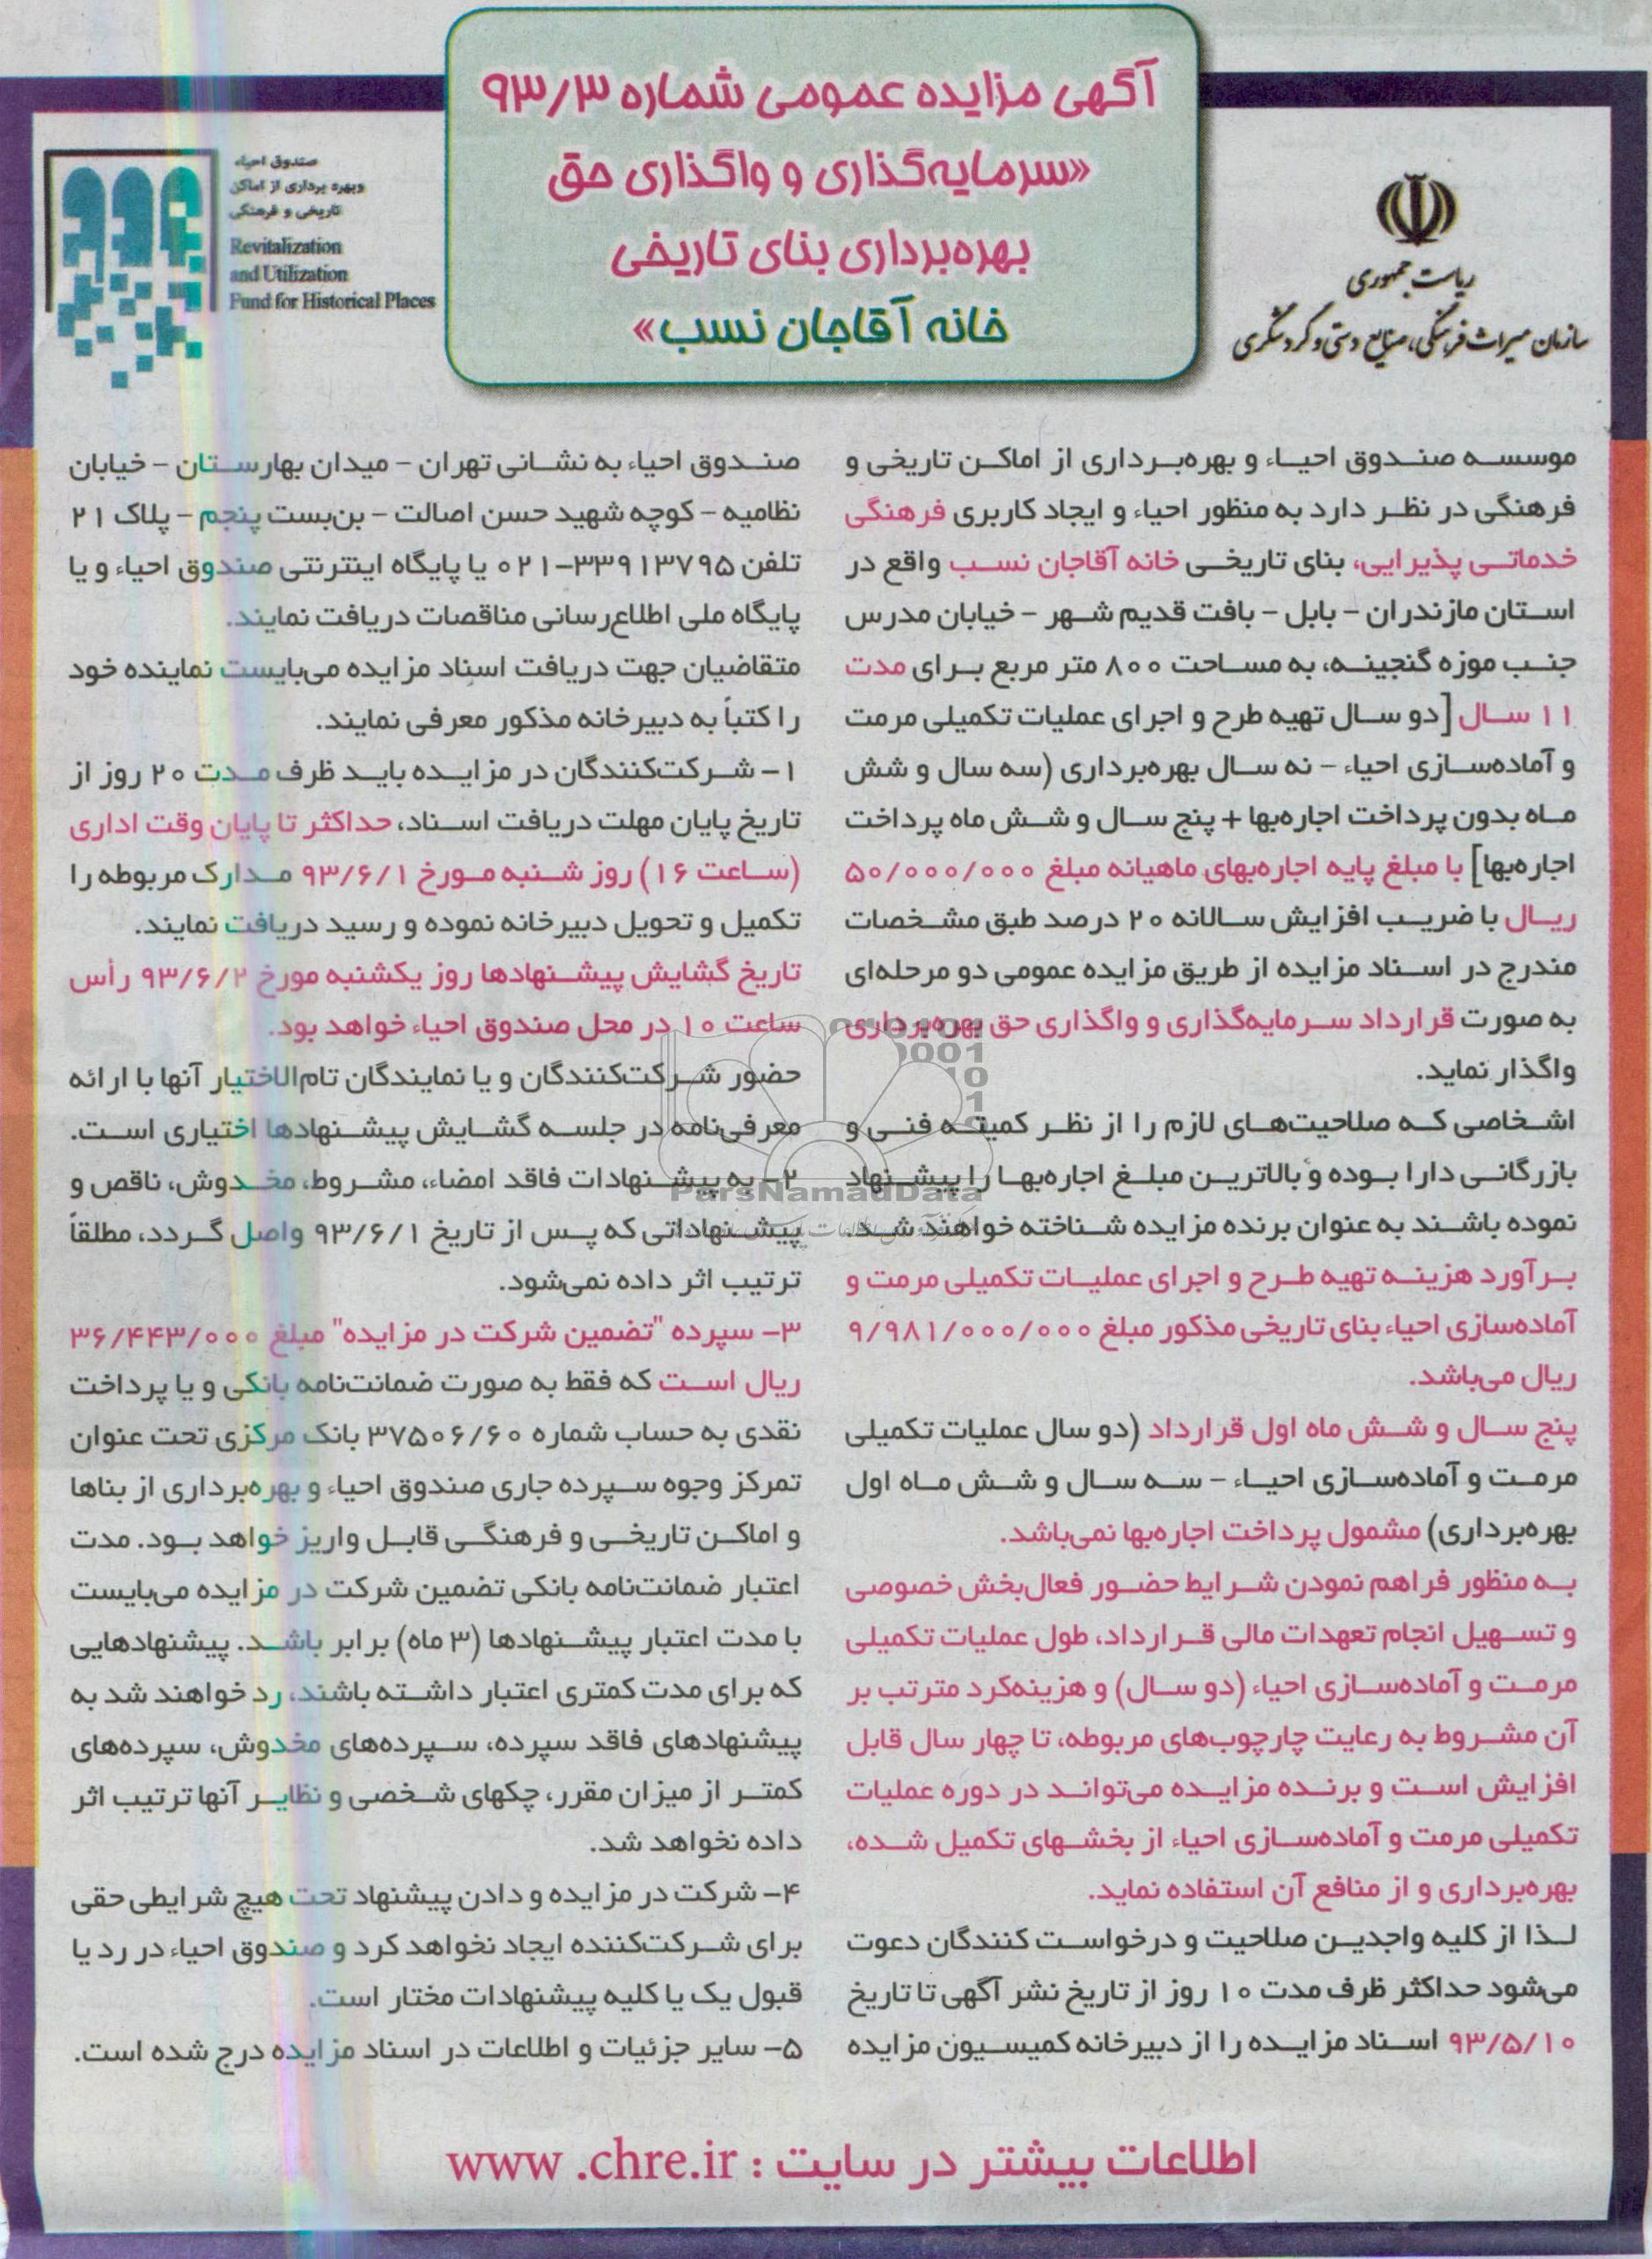 آگهی مزایده عمومی شماره ۹۳/۳
«سرمایه‌گذاری و واگذاری حق
بهره‌برداری بنای تاریخی
خانه آقاجان نسب»
ریاست جمهوری
سازمان میراث فرهنگی، صنایع دستی و گردشگری
صندوق احیاء
وبهره برداری از اماکن
تاریخی و فرهنگی
Revitalization
and Utilization
Fund for Historical Places
موسسه صندوق احیاء و بهره‌برداری از اماکن تاریخی و
فرهنگی در نظر دارد به منظور احیاء و ایجاد کاربری فرهنگی
خدماتی پذیرایی، بنای تاریخی خانه آقاجان نسب واقع در
استان مازندران – بابل – بافت قدیم شهر – خیابان مدرس
جنب موزه گنجینه، به مساحت ۸۰۰ متر مربع برای مدت
۱۱ سال [دو سال تهیه طرح و اجرای عملیات تکمیلی مرمت
و آماده‌سازی احیاء – نه سال بهره‌برداری (سه سال و شش
ماه بدون پرداخت اجاره‌بها + پنج سال و شش ماه پرداخت
اجاره‌بها] با مبلغ پایه اجاره‌بهای ماهیانه مبلغ ۵۰/۰۰۰/۰۰۰
ریال با ضریب افزایش سالانه ۲۰ درصد طبق مشخصات
مندرج در اسناد مزایده از طریق مزایده عمومی دو مرحله‌ای
به صورت قرارداد سرمایه‌گذاری و واگذاری حق بهره‌برداری
واگذار نماید.
اشخاصی که صلاحیت‌های لازم را از نظر کمیته فنی و
بازرگانی دارا بوده و بالاترین مبلغ اجاره‌بها را پیشنهاد
نموده باشند به عنوان برنده مزایده شناخته خواهند شد.
برآورد هزینه تهیه طرح و اجرای عملیات تکمیلی مرمت و
آماده‌سازی احیاء بنای تاریخی مذکور مبلغ ۹/۹۸۱/۰۰۰/۰۰۰
ریال می‌باشد.
پنج سال و شش ماه اول قرارداد (دو سال عملیات تکمیلی
مرمت و آماده‌سازی احیاء – سه سال و شش ماه اول
بهره‌برداری) مشمول پرداخت اجاره‌بها نمی‌باشد.
به منظور فراهم نمودن شرایط حضور فعال‌بخش خصوصی
و تسهیل انجام تعهدات مالی قرارداد، طول عملیات تکمیلی
مرمت و آماده‌سازی احیاء (دو سال) و هزینه‌کرد مترتب بر
آن مشروط به رعایت چارچوب‌های مربوطه، تا چهار سال قابل
افزایش است و برنده مزایده می‌تواند در دوره عملیات
تکمیلی مرمت و آماده‌سازی احیاء از بخشهای تکمیل شده،
بهره‌برداری و از منافع آن استفاده نماید.
لذا از کلیه واجدین صلاحیت و درخواست کنندگان دعوت
می‌شود حداکثر ظرف مدت ۱۰ روز از تاریخ نشر آگهی تا تاریخ
۹۳/۵/۱۰ اسناد مزایده را از دبیرخانه کمیسیون مزایده
صندوق احیاء به نشانی تهران – میدان بهارستان – خیابان
نظامیه – کوچه شهید حسن اصالت – بن‌بست پنجم – پلاک ۲۱
تلفن ۳۳۹۱۳۷۹۵-۰۲۱ یا پایگاه اینترنتی صندوق احیاء و یا
پایگاه ملی اطلاع‌رسانی مناقصات دریافت نمایند.
متقاضیان جهت دریافت اسناد مزایده می‌بایست نماینده خود
را کتباً به دبیرخانه مذکور معرفی نمایند.
۱– شرکت‌کنندگان در مزایده باید ظرف مدت ۲۰ روز از
تاریخ پایان مهلت دریافت اسناد، حداکثر تا پایان وقت اداری
(ساعت ۱۶) روز شنبه مورخ ۹۳/۶/۱ مدارک مربوطه را
تکمیل و تحویل دبیرخانه نموده و رسید دریافت نمایند.
تاریخ گشایش پیشنهادها روز یکشنبه مورخ ۹۳/۶/۲ رأس
ساعت ۱۰ در محل صندوق احیاء خواهد بود.
حضور شرکت‌کنندگان و یا نمایندگان تام‌الاختیار آنها با ارائه
معرفی‌نامه در جلسه گشایش پیشنهادها اختیاری است.
۲– به پیشنهادات فاقد امضاء، مشروط، مخدوش، ناقص و
پیشنهاداتی که پس از تاریخ ۹۳/۶/۱ واصل گردد، مطلقاً
ترتیب اثر داده نمی‌شود.
۳– سپرده "تضمین شرکت در مزایده" مبلغ ۳۶/۴۴۳/۰۰۰
ریال است که فقط به صورت ضمانت‌نامه بانکی و یا پرداخت
نقدی به حساب شماره ۳۷۵۰۶/۶۰ بانک مرکزی تحت عنوان
تمرکز وجوه سپرده جاری صندوق احیاء و بهره‌برداری از بناها
و اماکن تاریخی و فرهنگی قابل واریز خواهد بود. مدت
اعتبار ضمانت‌نامه بانکی تضمین شرکت در مزایده می‌بایست
با مدت اعتبار پیشنهادها (۳ ماه) برابر باشد. پیشنهادهایی
که برای مدت کمتری اعتبار داشته باشند، رد خواهند شد به
پیشنهادهای فاقد سپرده، سپرده‌های مخدوش، سپرده‌های
کمتر از میزان مقرر، چکهای شخصی و نظایر آنها ترتیب اثر
داده نخواهد شد.
۴– شرکت در مزایده و دادن پیشنهاد تحت هیچ شرایطی حقی
برای شرکت‌کننده ایجاد نخواهد کرد و صندوق احیاء در رد یا
قبول یک یا کلیه پیشنهادات مختار است.
۵– سایر جزئیات و اطلاعات در اسناد مزایده درج شده است.
ParsNamadData
اطلاعات بیشتر در سایت : www .chre.ir